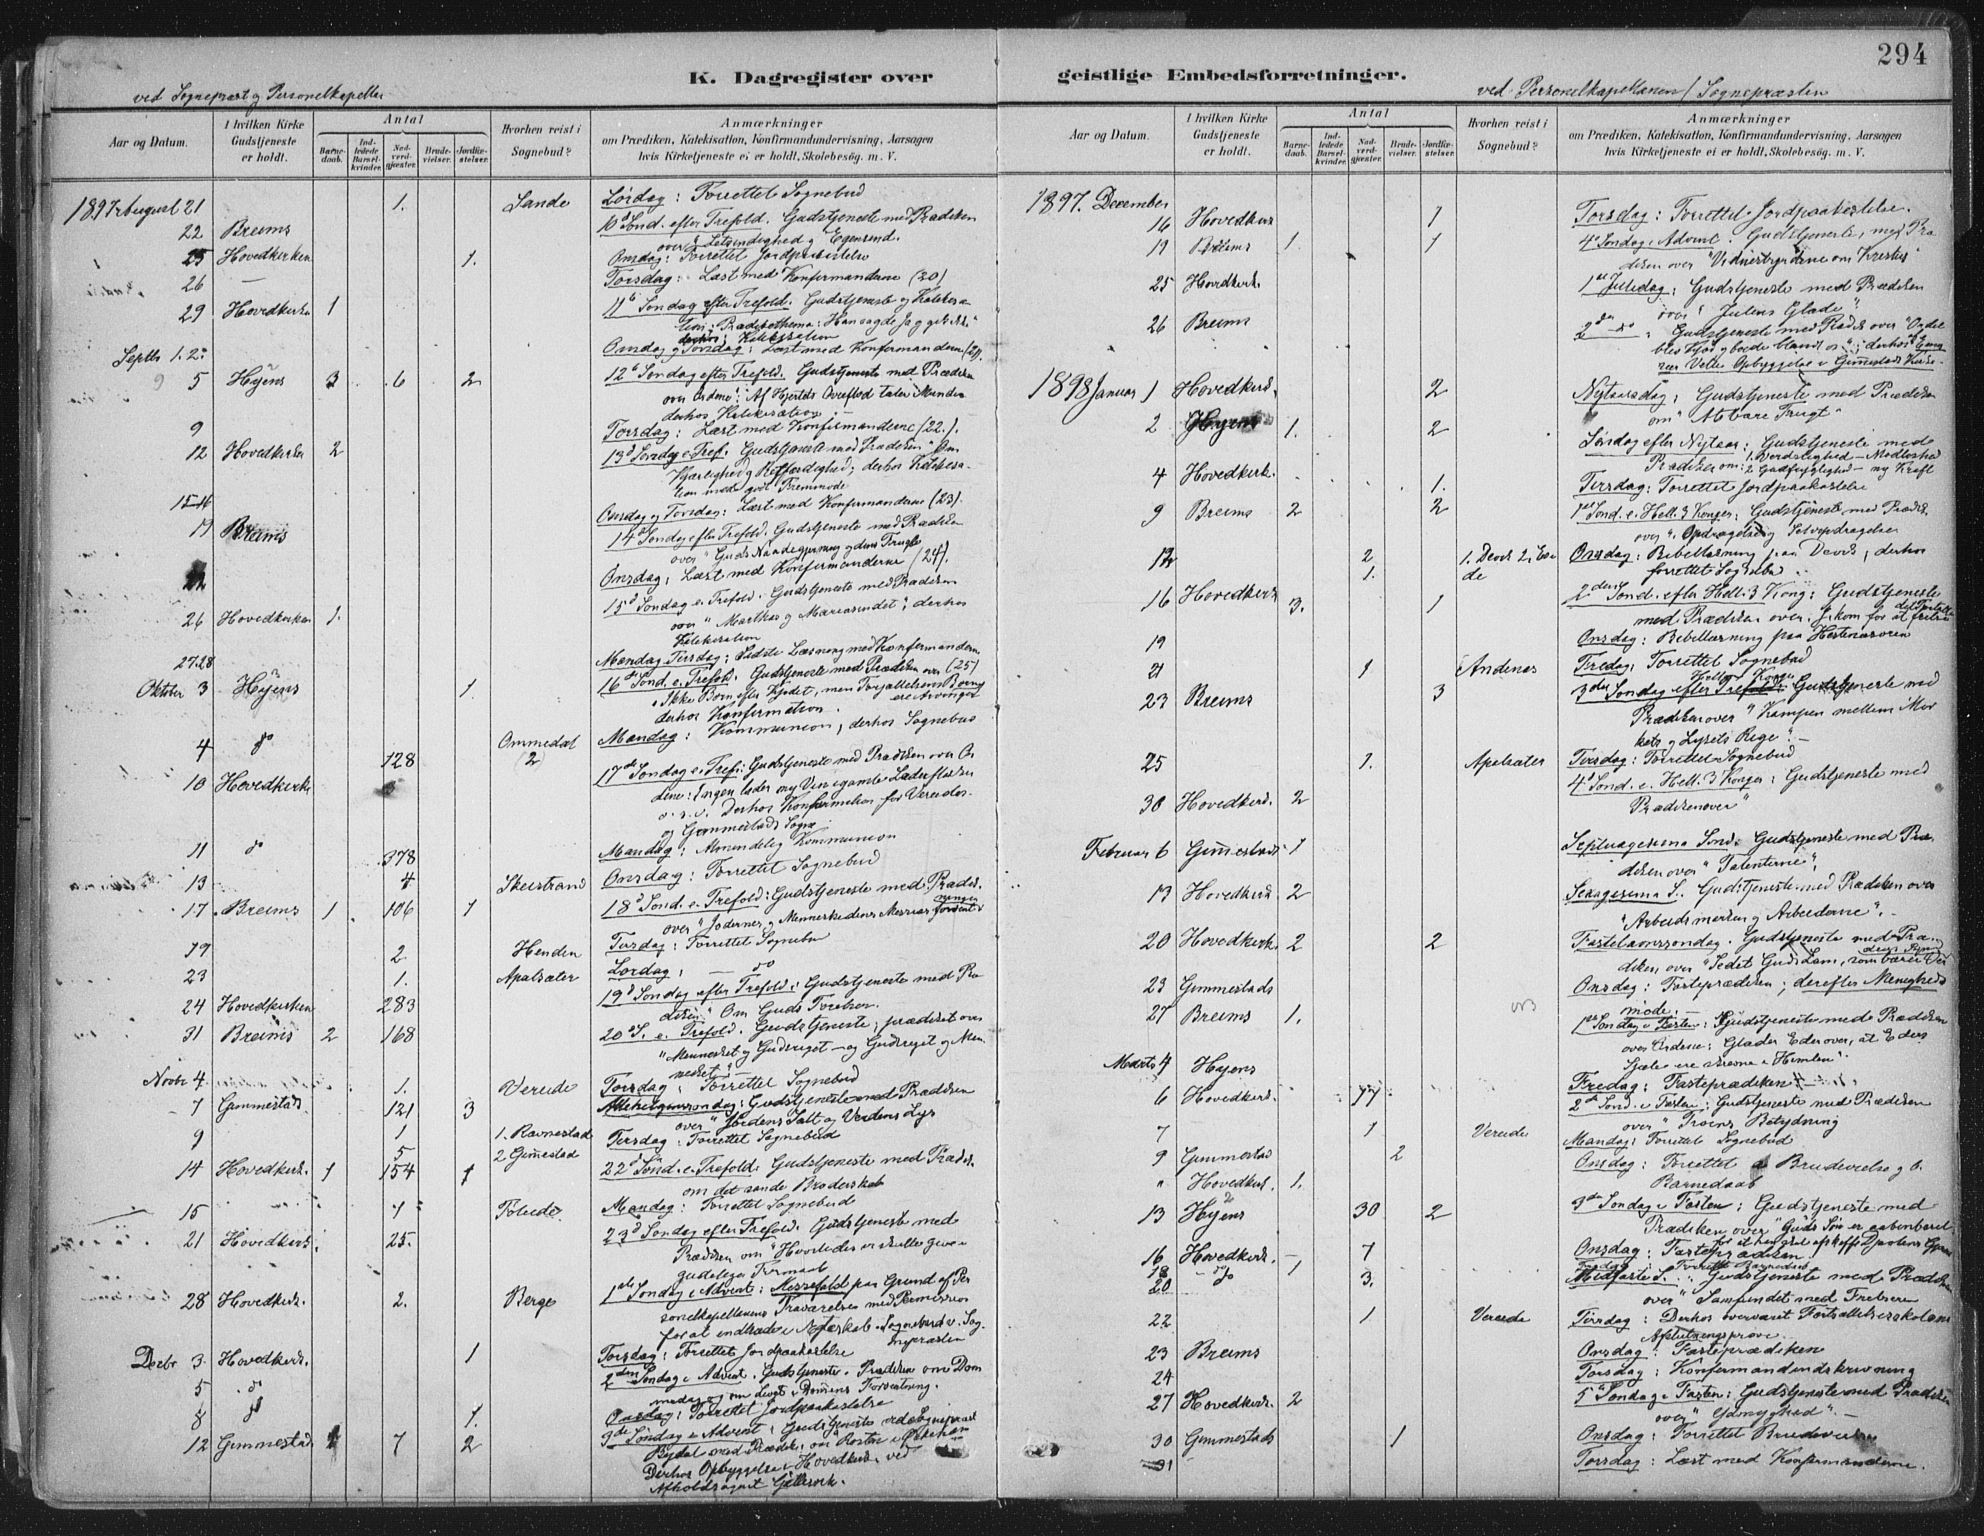 294
K. Dagregister over
geistlige Embedsforretninger.
ved Sognepræst og Personelkapellan
ved Personelkapellanen / Sognepræsten
Aar og Datum.
I hvilken Kirke
Gudstjeneste
er holdt.
Antal
Barne-
daab.
Ind-
ledede
Barsel-
kvinder.
Nad-
verd-
gjæster.
Brude-
vielser.
Jordfæ-
stelser.
Hvorhen reist i
Sognebud?
Anmærkninger
om Prædiken, Katekisation, Konfirmandundervisning, Aarsagen
hvis Kirketjeneste ei er holdt, Skolebesøg. m. V.
1897 August 21 1. Sande Lørdag: Forrettet Sognebud
22 Breims 10d Sønd. efter Trefold. Gudstjeneste med Prædiken
over "Letsindighed og Egensind.
25 Hovedkirken 1. Onsdag: Forrettet Jordpaakastelse
26 — Torsdag: Læst med Konfirmanderne (20)
29 Hovedkirken 1 11te Søndag efter Trefold. Gudstjeneste og Katekisa-
tion
derhos Katekisation
Septbr 1. 2. Onsdag og Torsdag: Læst med Konfirmanderne (21).
5 Hyens 3 6 2 12te Søndag efter Trefold. Gudstjeneste med Prædiken
over Ordene: Af Hjertets Overflod taler Munden
derhos Katekisation
9 Torsdag: Læst med Konfirmanderne (22.).
12 Hovedkirken 2 13d Søndag e. Tref. Gudstjeneste med Prædiken "Om
Kjærlighed og Retfærdighed; derhos Katekisa-
tion med godt Fremmøde
15-16 Onsdag og Torsdag: Læst med Konfirmanderne (23).
19 Breims 14d Søndag efter Trefold. Gudstjeneste med Prædiken
over "Guds Naadegjerning og dens Frugt
22 Onsdag: Læst med Konfirmanderne (24).
26 Hovedkirken 1. 15d Søndag e. Trefold. Gudstjeneste med Prædiken
over "Marthas og Mariasindet"; derhos
Katekisation
27.28 Mandag. Tirsdag: Sidste Læsning med Konfirmanderne
(25)
Oktober 3 Hyens 1. 16de Sønd. e. Trefold. Gudstjeneste med Prædiken over
"Ikke Børn efter Kjødet, men Forjættelsens Børn
ere Arvinger
derhos Konfirmation.
4 do 128 Ommedal (2) Mandag: Kommunion, derhos Sognebud
10 Hovedkirke 17de Søndag e. Tref.: Gudstjeneste med Prædiken over Or-
dene: Ingen lader ny Vin i gamle Læderflasker
o.s.v. Derhos Konfirmation for Vereides
og Gimmestads Sogne
11 do 378 Mandag: Almindelig Kommunion
13 4 Skeistrand Onsdag: Forrettet Sognebud
17 Breims 1 106 1 18d Sønd. e. Trefold: Gudstjeneste med Prædik.
over "Jødernes og Menneskehedens Messias
19 2 Henden Tirsdag: Forrettet Sognebud
23 1. Apalsæter Lørdag: — do
24 Hovedkirken 283 19d Søndag efter Trefold.: Gudstjeneste med Præ-
diken "Om Guds
31 Breims 2 168 20d S. e. Trefold. Gudstjeneste; prædiket over
"Mennesket og Gudsriget — og Gudsriget og Men-
nesket"
Novbr 4 1. Vereide Torsdag: Forrettet Sognebud
7 Gimmestad 121 3 Allehelgenssøndag: Gudstjeneste med Prædiken
over "Jordens Salt og Verdens Lys
9 1 1. Ravnestad Tirsdag: Forrettet Sognebud
5 2 Gimestad
14 Hovedkirk. 1 154 1 22d Sønd. e. Trefold: Gudstjeneste med Prædik.
om det sande Broderskab
15 1 Mandag: Forrettet Sognebud
21 Hovedkirk. 25. 23d Søndag efter Trefold. Gudstjeneste med
Prædiken om "Hvorledes vi skulle give i
28 Hovedkirk. 2. Berge 1ste Søndag i Advent: Messefald paa Grund af Per-
sonelkapellanens Fraværelse med Permission
for at indtræde i Ægteskab. Sognebud v. Sog-
nepræsten
Decbr 3. Hovedkirk. 1 Torsdag: Forrettet Jordpaakastelse
5 do 2den Søndag i Advent. Gudstjeneste. Prædiken om Dom-
8 do 1. Onsdag: Forrettet Jordpaakastelse
12 Gimmestad 7 2 3de Søndag i Advent: Gudstjeneste ved Sognepræst
Derhos Opbyggelse i Hovedkirk. ved
Aar og Datum.
I hvilken Kirke
Gudstjeneste
er holdt.
Antal
Barne-
daab.
Ind-
ledede
Barsel-
kvinder.
Nad-
verd-
gjæster.
Brude-
vielser.
Jordfæ-
stelser.
Hvorhen reist i
Sognebud?
Anmærkninger
om Prædiken, Katekisation, Konfirmandundervisning, Aarsagen
hvis Kirketjeneste ei er holdt, Skolebesøg. m. V.
1897. December
16 Hovedkirk 1 Torsdag: Forrettet Jordpaakastelse.
19 Breims 1. 1 4d Søndag i Advent. Gudstjeneste, med Præ-
diken over "Vidnesbyrdene om Kristus"
25 Hovedkirk. 1ste Juledag: Gudstjeneste med Prædiken
over "Julens Glæde"
26 Breims 2den do Gudstjeneste med Prædik. over "Ordet
blev Kjød og boede blandt os"; derhos
Opbyggelse i Gimestads Kirke.
1898 Januar 1 Hovedkirk. 2 Nytaarsdag: Gudstjeneste med Prædiken
om "At bære Frugt"
2 Hyens 1. 2 Søndag efter Nytaar: Gudstjeneste med
Prædiken om: 1. Verdslighed — Modløshed
2 Gudfrygtighed — ny Kraft
4 Hovedkirk. 1. Tirsdag: Forrettet Jordpaakastelse
9 Breims 2 2 1ste Sønd. e. Hell. 3 Konger: Gudstjeneste med Prædik.
over "Opdragelse og Selvopdragelse
12 2 Onsdag: Bibellæsning paa Devik, derhos
1. forrettet Sognebud
16 Hovedkirk 3. 1 2den Sønd. efter Hell. 3 Kong: Gudstjeneste
med Prædiken over:
19 Onsdag: Bibellæsning paa Hestenæsøren
21 1 Andenes Fredag, Forrettet Sognebud
23 Breims 3 3die Søndag efter Hell 3 Konger Gudstjeneste med
Prædiken over "Kampen mellem Mør-
kets og Lysets Rige" —
25 1. Apelsæter Tirsdag: Forrettet Sognebud
30 Hovedkirk. 2 4d Sønd. e. Hell. 3 Konger: Gudstjeneste med
Prædiken over "
Februar 6 Gimestads 1 Septuagesima Sønd: Gudstjeneste med Præ-
diken over "Talenterne".
13 Hovedkirk 2 Sexagesima S. Gudstjeneste med Prædiken over
"Arbeidsmarken og Arbeiderne". —
20 Hovedkirk. 2 2 Fastelavnssøndag. Gudstjeneste med Præ-
diken over "Se det Guds Lam, som bærer Ver-
dens Synd
23 Gimmestads Onsdag: Fasteprædiken; derefter Menigheds-
møde. —
27 Breims 1. 1ste Søndag i Fasten: Gudstjeneste med Prædiken
over Ordene: Glæder Eder over, at Eders
Sjæle ere skrevne i Himlen".
Marts 4 Hyens Fredag: Fasteprædiken
6 Hovedkirk. 77 2de Sønd. i Fasten: Gudstjeneste med Prædiken
over "Troens Betydning
7 1 Vereide Mandag: Forrettet Sognebud
9 Gimmestad 2 Onsdag: Forrettet Brudevielse og
" Hovedkirk. 1. Barnedaab
13 Hyens 30 2 3die Søndag i Fasten: Gudstjeneste med
Prædiken over "Guds Søn er aabenbaret
for at han skal afskaffe Djævlens Gjern.
16 Hovedkirk. — 7 Onsdag: Fasteprædiken
18 do 1 Forrettet Barnedaab
20 3. Midfaste S. Gudstjeneste med Prædiken
over "Samfundet med Frelseren
22 1 Vereide Tirsdag: Derhos overværet Fortsættelsesskolens
Afslutningsprøve.
23 Breims Onsdag: Fasteprædiken
24 Torsdag: Konfirmandindskrivning
27 Hovedkirk. 2 5te Søndag i Fasten: Gudstjeneste med Prædiken
over "Ydmyghed". —
30 Gimmestads 1 Onsdag: Forrettet Brudevielse
31 Torsdag: Læst med Konfirmanderne.